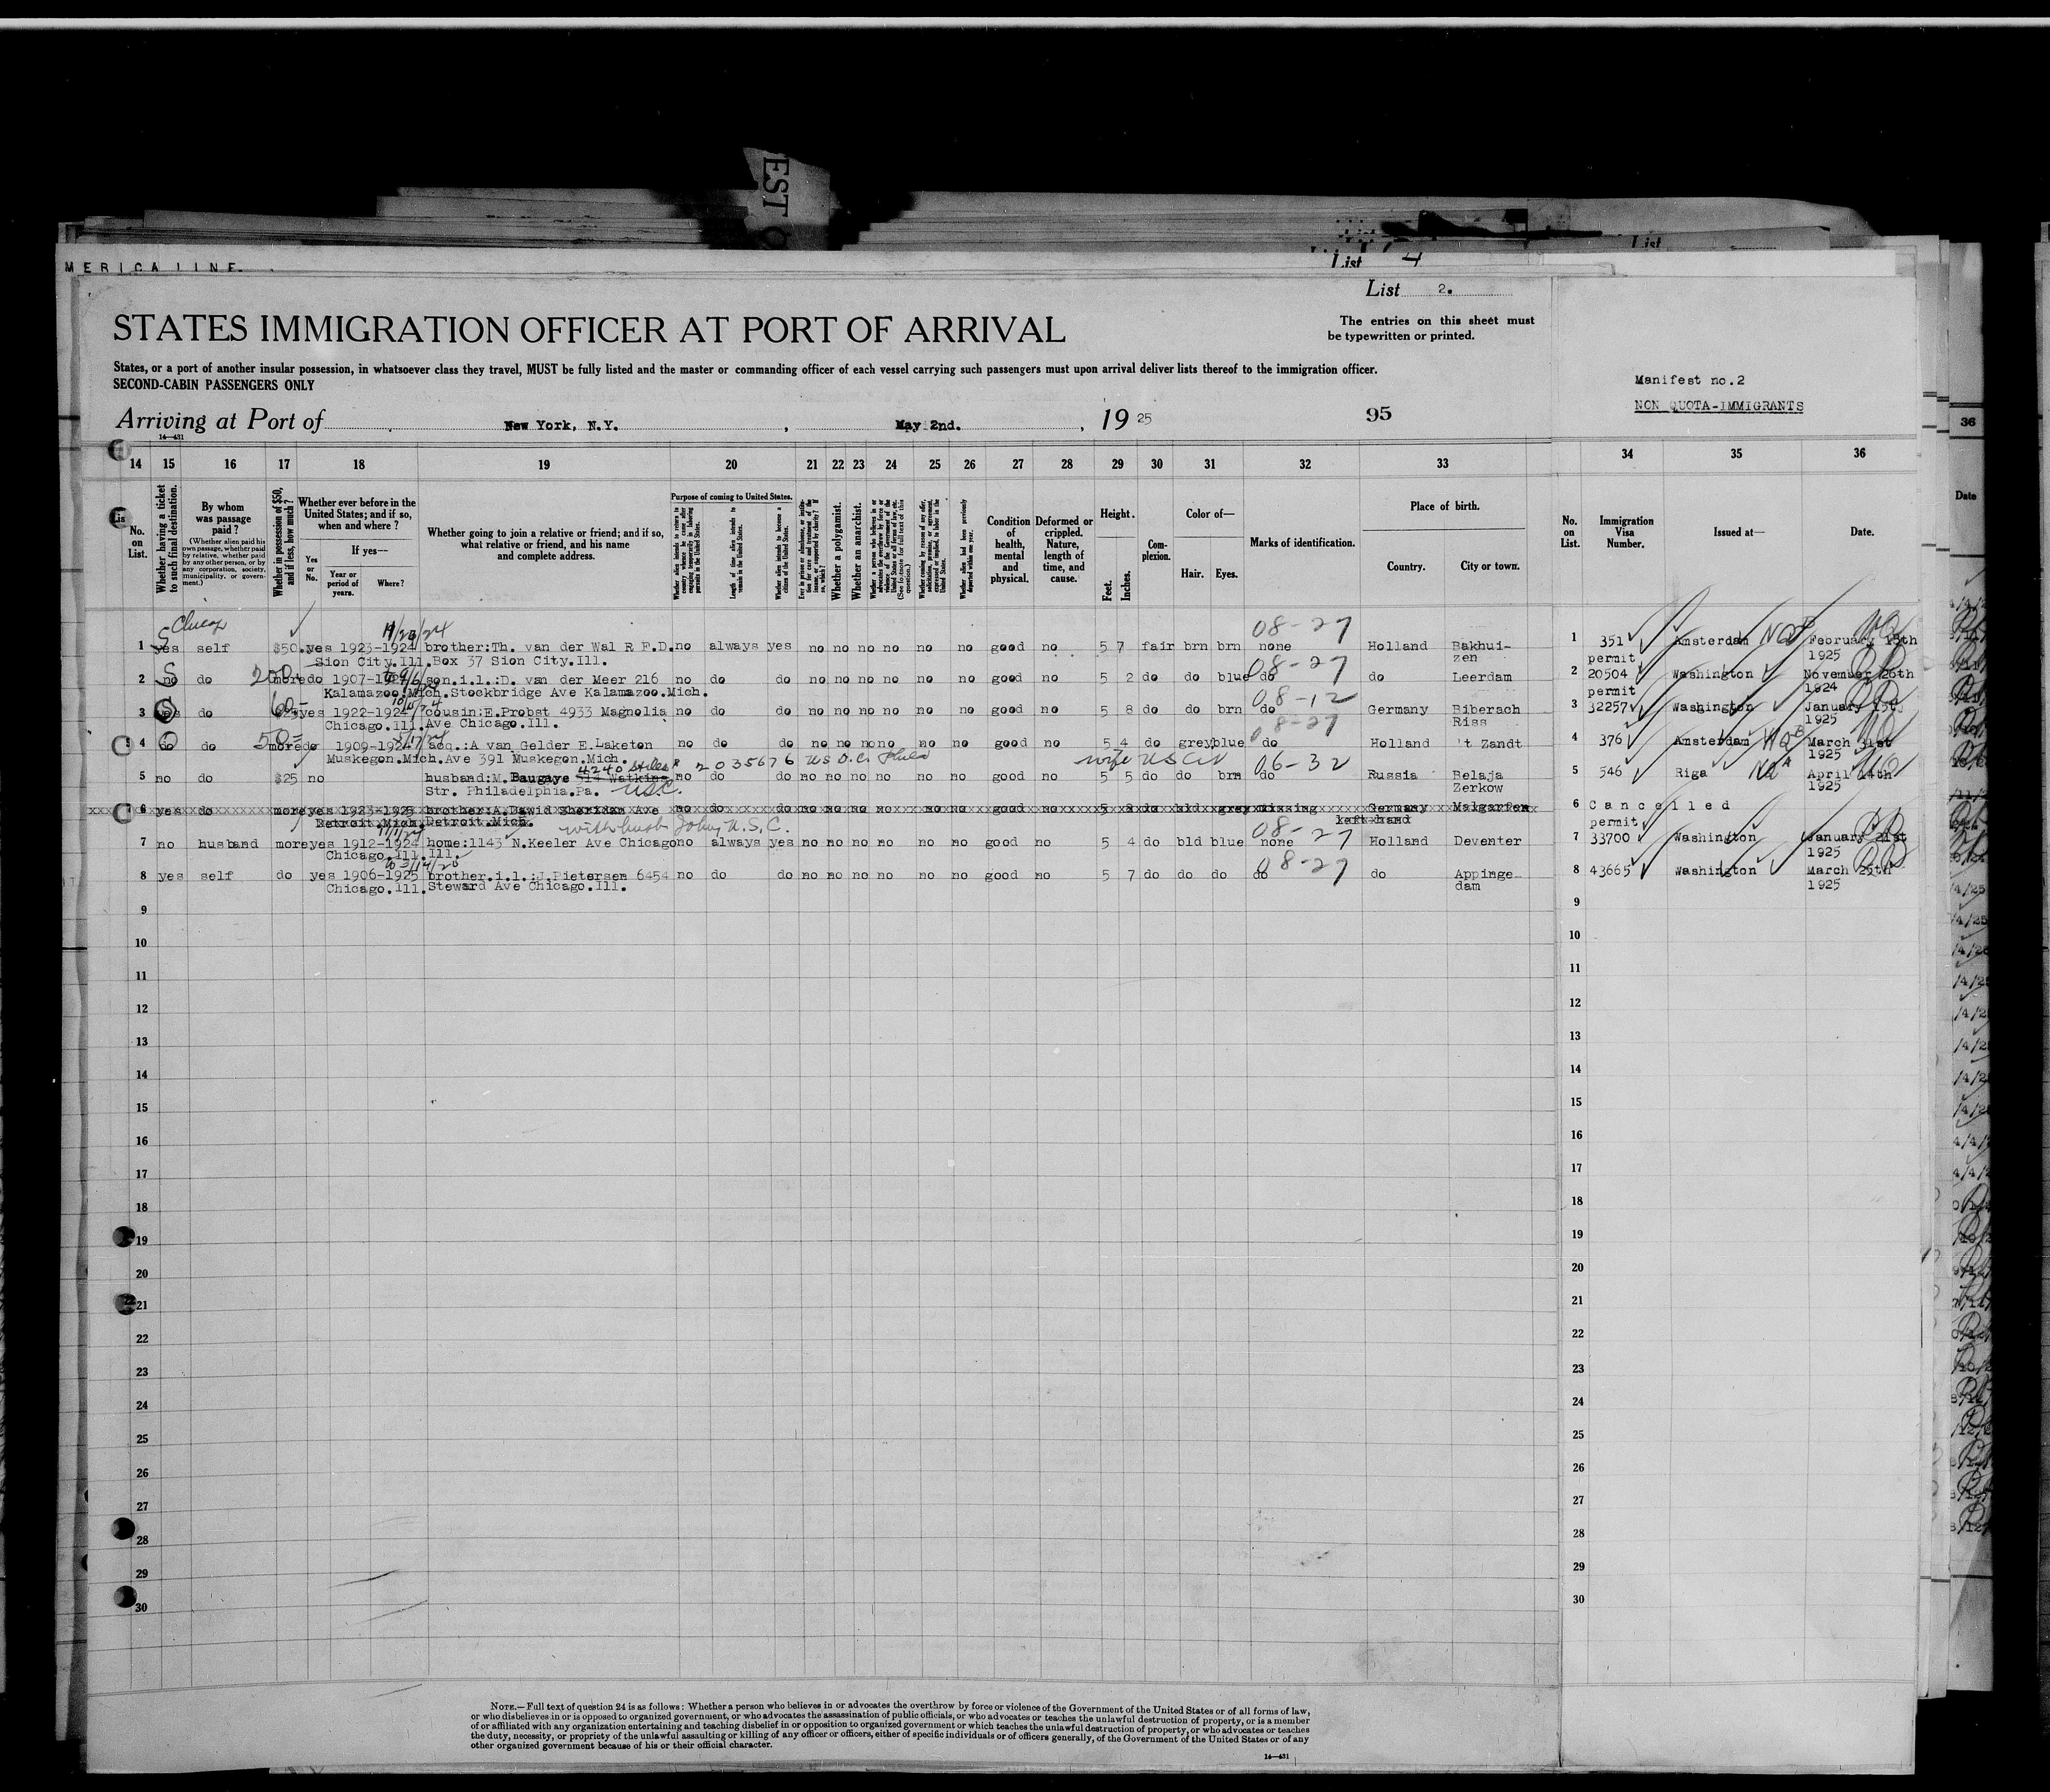 EST
List
List 4
MERICA LINE.
List 2.
STATES IMMIGRATION OFFICER AT PORT OF ARRIVAL
The entries on this sheet must
be typewritten or printed.
States, or a port of another insular possession, in whatsoever class they travel, MUST be fully listed and the master or commanding officer of each vessel carrying such passengers must upon arrival deliver lists thereof to the immigration officer.
SECOND-CABIN PASSENGERS ONLY
Manifest no.2
NON QUOTA-IMMIGRANTS
Arriving at Port of New York, N.Y. , May 2nd. , 19 25 95
14—431
36
14 15 16 17 18 19 20 21 22 23 24 25 26 27 28 29 30 31 32 33 34 35 36
No. on List.
Whether having a ticket to such final destination.
By whom was passage paid?
(Whether alien paid his own passage, whether paid by relative, whether paid by any other person, or by any corporation, society, municipality, or government.)
Whether in possession of $50, and if less, how much?
Whether ever before in the United States; and if so, when and where?
Yes or No.
If yes—
Year or period of years.
Where?
Whether going to join a relative or friend; and if so, what relative or friend, and his name and complete address.
Purpose of coming to United States.
Length of time alien intends to remain in the United States.
Whether alien intends to become a citizen of the United States.
Whether a polygamist.
Whether an anarchist.
Condition of health, mental and physical.
Deformed or crippled. Nature, length of time, and cause.
Height.
Feet.
Inches.
Complexion.
Color of—
Hair.
Eyes.
Marks of identification.
Place of birth.
Country.
City or town.
No. on List.
Immigration Visa Number.
Issued at—
Date.
Date
11/28/24 08-27
1 yes self $50. yes 1923-1924 brother:Th. van der Wal R F.D. no always yes no no no no no no good no 5 7 fair brn brn none Holland Bakhui- 1 351 Amsterdam February 13th
Sion City.Ill. Box 37 Sion City.Ill. zen permit 1925
200 08-27
2 no do more do 1907-1924 son.i.l.:D. van der Meer 216 no do do no no no no no no good no 5 2 do do blue do do Leerdam 2 20504 Washington November 26th
Kalamazoo.Mich. Stockbridge Ave Kalamazoo.Mich. permit 1924
60- 08-12
3 yes do $25 yes 1922-1924 cousin:E.Probst 4933 Magnolia no do do no no no no no no good no 5 8 do do brn do Germany Biberach 3 32257 Washington January
Chicago.Ill. Ave Chicago.Ill. Riss 1925
50= 08-27
4 do do more do 1909-1924 acq.:A van Gelder E.Laketon no do do no no no no no no good no 5 4 do grey blue do Holland 't Zandt 4 376 Amsterdam March 31st
Muskegon.Mich. Ave 391 Muskegon.Mich. 1925
4240 Stiles 2035676 wife USCit 06-32
5 no do $25 no husband:M. Baugaye 514 Watkins no do do no no no no no no good no 5 5 do do brn do Russia Belaja 5 546 Riga April 14th
Str. Philadelphia.Pa. U.S.C. Zerkow 1925
6 yes do more yes 1923-1925 brother:A.Dawid Sheridan Ave no do do no no no no no no good no 5 8 do bld grey missing Germany Malgarten 6 Cancelled
Detroit.Mich. Detroit.Mich. left hand permit
with husb John, U.S.C. 08-27
7 no husband more yes 1912-1924 home:1143 N.Keeler Ave Chicago no always yes no no no no no no good no 5 4 do bld blue none Holland Deventer 7 33700 Washington January 21st
Chicago.Ill. Ill. 1925
08-27
8 yes self do yes 1906-1925 brother.i.l.:J.Pietersen 6454 no do do no no no no no no good no 5 7 do do do do do Appinge- 8 43665 Washington March 25th
Chicago.Ill. Steward Ave Chicago.Ill. dam 1925
9 9
10 10
11 11
12 12
13 13
14 14
15 15
16 16
17 17
18 18
19 19
20 20
21 21
22 22
23 23
24 24
25 25
26 26
27 27
28 28
29 29
30 30
NOTE.—Full text of question 24 is as follows: Whether a person who believes in or advocates the overthrow by force or violence of the Government of the United States or of all forms of law,
or who disbelieves in or is opposed to organized government, or who advocates the assassination of public officials, or who advocates or teaches the unlawful destruction of property, or is a member
of or affiliated with any organization entertaining and teaching disbelief in or opposition to organized government or which teaches the unlawful destruction of property, or who advocates or teaches
the duty, necessity, or propriety of the unlawful assaulting or killing of any officer or officers, either of specific individuals or of officers generally, of the Government of the United States or of any
other organized government because of his or their official character.
14—431